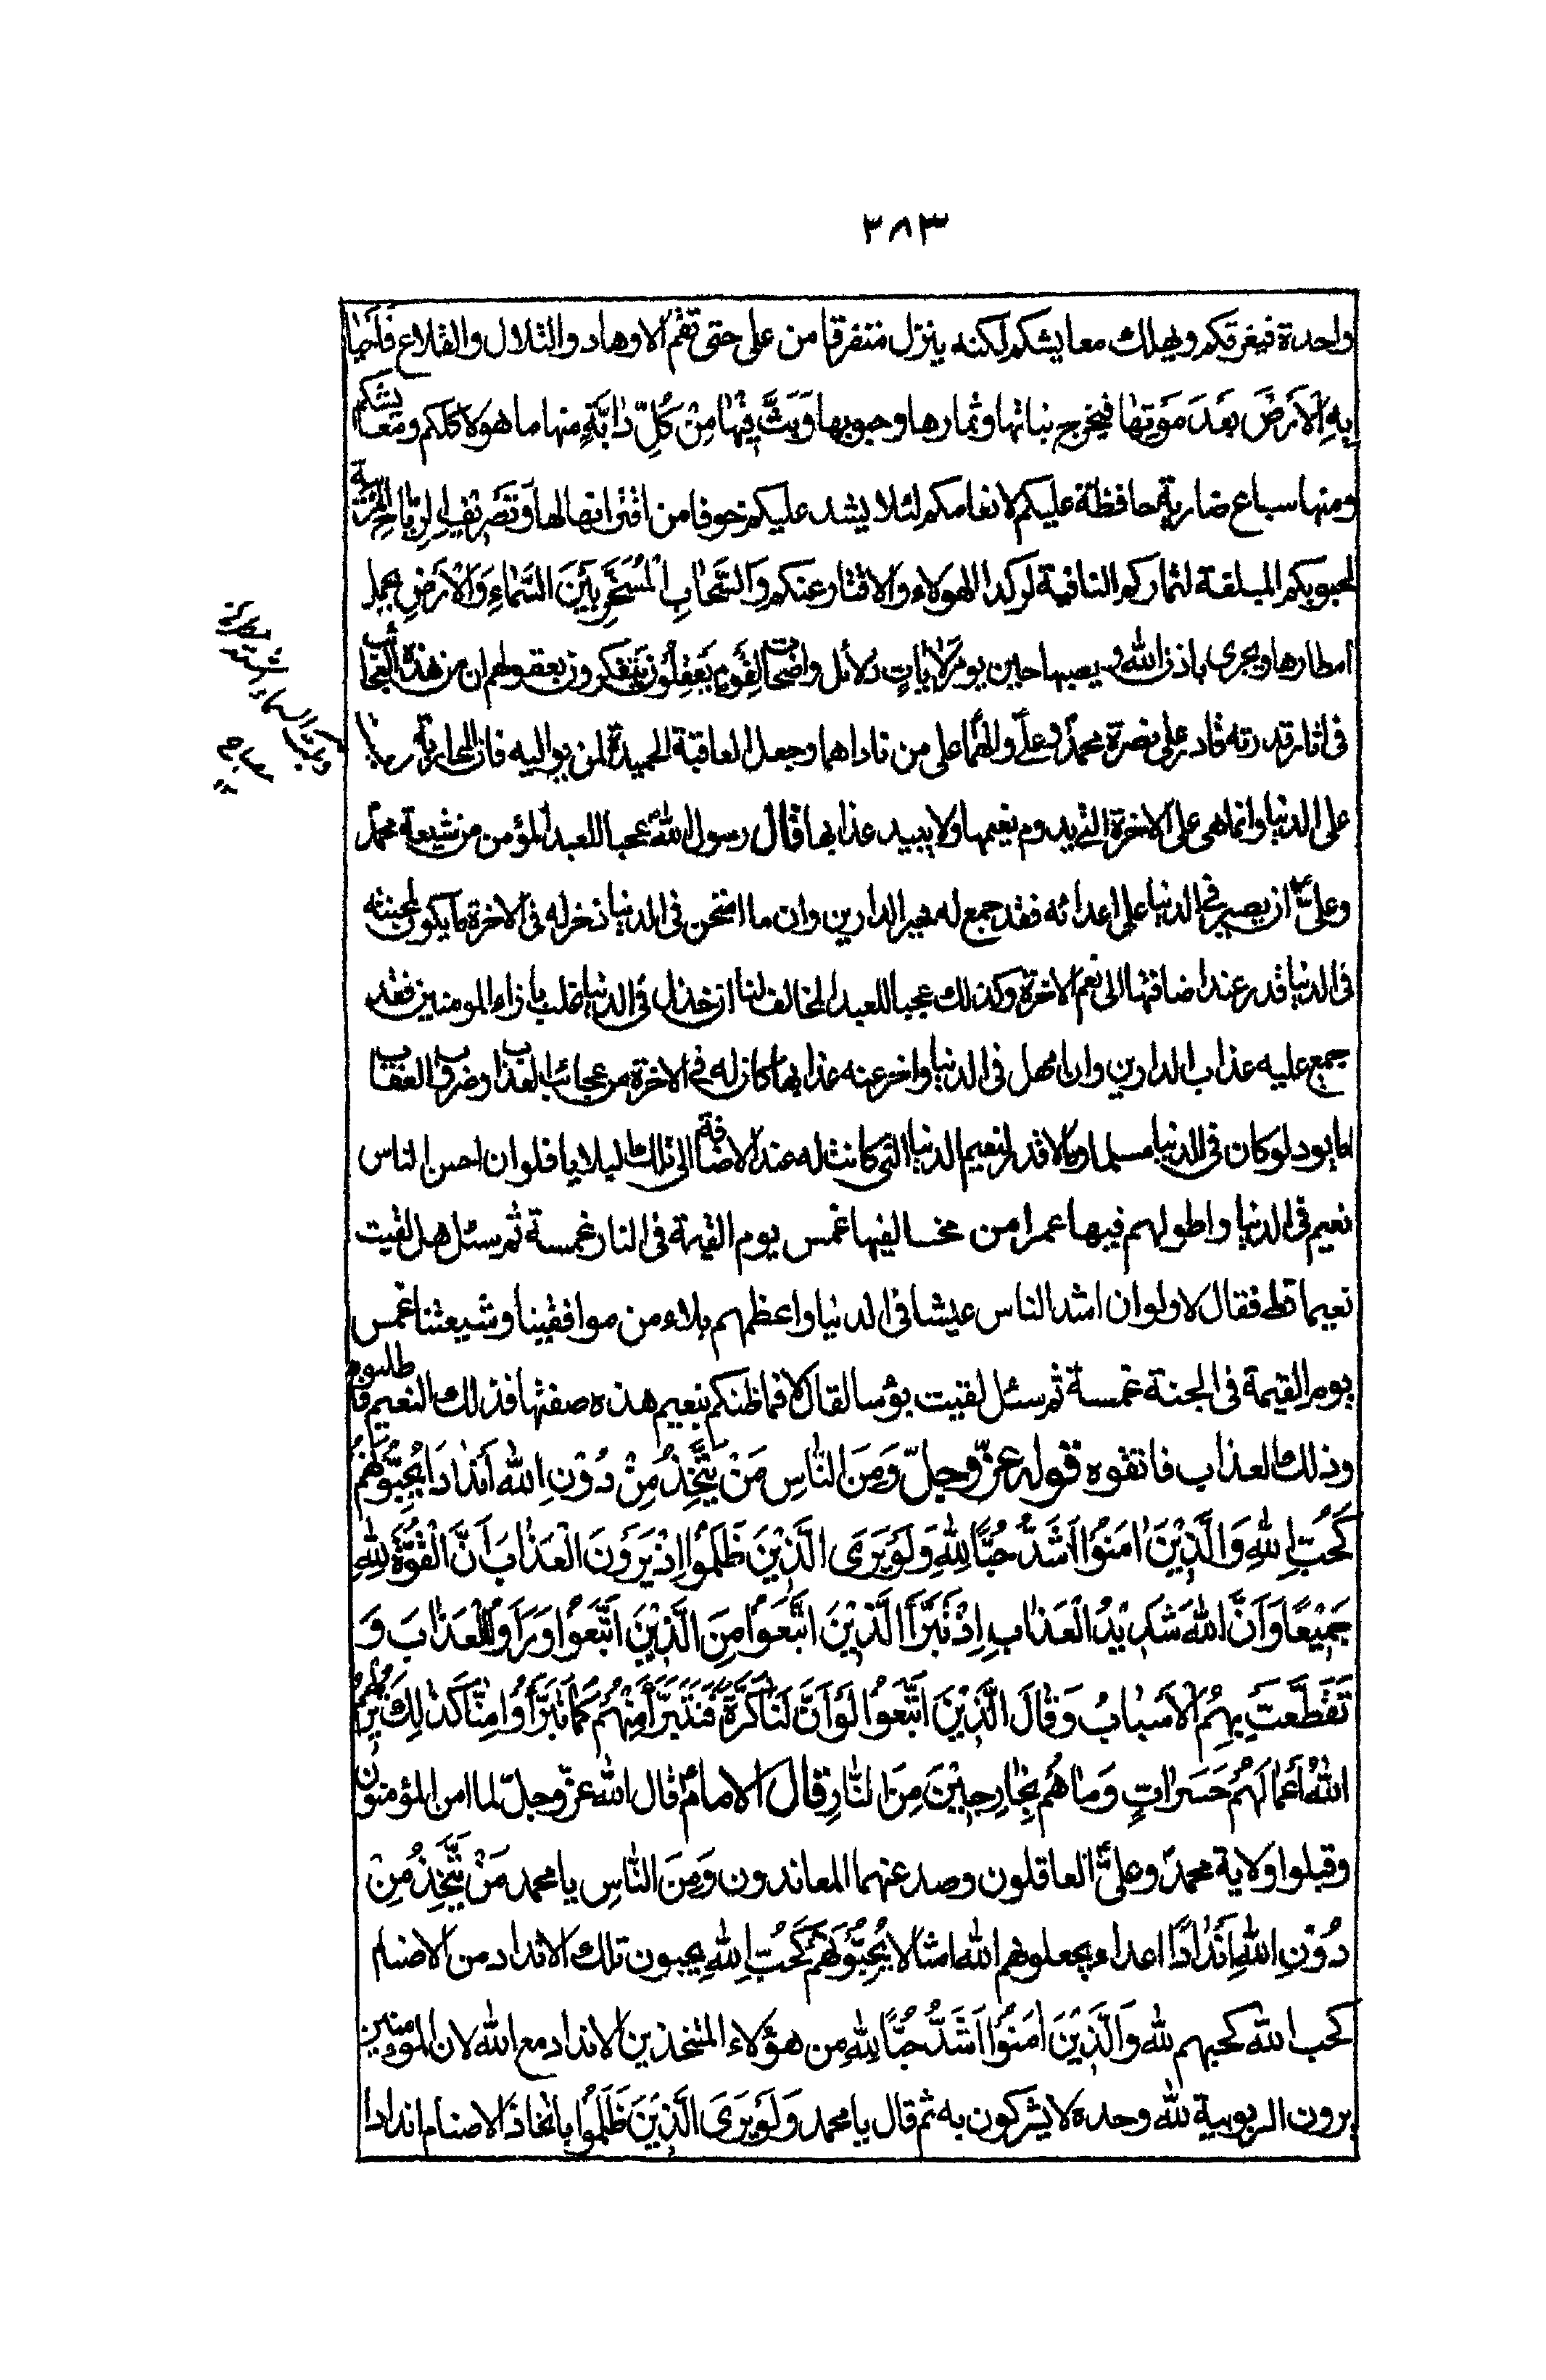 ٢٨٣
واحدة فيغرقكم ويهلك معايشكم لكنه ينزل متفرقا من على حتى تعم الاوهاد والتلال والقلاع فَاَحْيٰا
بِهِ الْاَرْضَ بَعْدَ مَوْتِهٰا فيخرج نباتها وثمارها وحبوبها وَبَثَّ فِيْهٰا مِنْ كُلِّ دٰابَّةٍ منها ما هو لاكلكم ومعايشكم
ومنها سباع ضارية حافظة عليكم لانعامكم لئلا يشد عليكم خوفا من افتراتها لها وَتَصْرِيْفِ الرِّيٰاحِ المربية
لحبوبكم المبلغة لثماركم النافية لركد الهولاء والاقتار عنكم وَالسَّحٰابِ الْمُسَخَّرِ بَيْنَ السَّمٰاءِ وَالْاَرْضِ يحمل
امطارها ويجرى باذن الله و يصبها حين يومر لَاٰيٰاتٍ دلائل واضحات لِقَوْمٍ يَعْقِلُوْنَ يتفكرون بعقولهم ان من هذه العجائب
فى اثار قدرته قادر على نصرة محمدؐ وعلىؑ والهما على من ناداهما وجعل العاقبة الحميدة لمن يواليه فان المجازية
على الدنيا وانما هى على الاخرة التى يدوم نعيمها ولا يبيد عذابها قال رسول اللهؐ عجبا للعبد المؤمن من شيعة محمدؐ
وعلىؑ ان ينصر فى الدنيا على اعدائه فقد جمع له خير الدارين وان ما امتحن فى الدنيا ذخر له فى الاخرة ما يكون لمحنته
فى الدنيا قدر عند اضافتها الى نعم الاخرة وكذلك عجبا للعبد المخالف لنا ان خذل فى الدنيا وغلب بازاء المومنين فقد
جمع عليه عذاب الدارين وان امهل فى الدنيا واخر عنه عذابها كان له فى الاخرة من عجائب العذاب وضروب العقاب
ما يود لو كان فى الدنيا مسلما وما لا قدر لنعيم الدنيا التى كانت له عند الاضافة الى تلك البلايا فلو ان احسن الناس
نعيم فى الدنيا واطولهم فيها عمرا من مخالفيها غمس يوم القيمة فى النار غمسة ثم سئل هل لقيت
نعيما قط فقال لا ولو ان اشد الناس عيشا فى الدنيا واعظمهم بلاء من موافقينا وشيعتنا غمس
يوم القيمة فى الجنة غمسة ثم سئل لقيت بؤسا لقال لا فما ظنكم بنعيم هذه صفتها فذلك النعيم فاطلبوه
وذلك العذاب فاتقوه قوله عزّ وجلّ وَمِنَ النّٰاسِ مَنْ يَتَّخِذُ مِنْ دُوْنِ اللهِ اَنْدٰادًا يُحِبُّوْنَهُمْ
كَحُبِّ اللهِ وَالَّذِيْنَ اٰمَنُوْا اَشَدُّ حُبًّا لِلّٰهِ وَلَوْ يَرَى الَّذِيْنَ ظَلَمُوْا اِذْ يَرَوْنَ الْعَذٰابَ اَنَّ الْقُوَّةَ لِلّٰهِ
جَمِيْعًا وَاَنَّ اللهَ شَدِيْدُ الْعَذٰابِ اِذْ تَبَرَّاَ الَّذِيْنَ اتُّبِعُوْا مِنَ الَّذِيْنَ اتَّبَعُوْا وَرَاَوُا الْعَذٰابَ وَ
تَقَطَّعَتْ بِهِمُ الْاَسْبٰابُ وَقٰالَ الَّذِيْنَ اتَّبَعُوْا لَوْ اَنَّ لَنٰا كَرَّةً فَنَتَبَرَّاَ مِنْهُمْ كَمٰا تَبَرَّاُوْا مِنّٰا كَذٰلِكَ يُرِيْهِمُ
اللهُ اَعْمٰالَهُمْ حَسَرٰاتٍ وَمٰا هُمْ بِخٰارِجِيْنَ مِنَ النّٰارِ قال الامامؑ قال الله عزّ وجلّ لما امن المؤمنون
وقبلوا ولاية محمدؐ وعلىؑ العاقلون وصد عنهما المعاندون وَمِنَ النّٰاسِ يا محمد مَنْ يَتَّخِذُ مِنْ
دُوْنِ اللهِ اَنْدٰادًا اعداء يجعلونهم الله امثالا يُحِبُّوْنَهُمْ كَحُبِّ اللهِ يحبون تلك الانداد من الاصنام
كحب الله كحبهم لله وَالَّذِيْنَ اٰمَنُوْا اَشَدُّ حُبًّا لِلّٰهِ من هؤلاء المتخذين الانداد مع الله لان المؤمنين
يرون الربوبية لله وحده لا يشركون به ثم قال يا محمد وَلَوْ يَرَى الَّذِيْنَ ظَلَمُوْا باتخاذ الاصنام اندادا